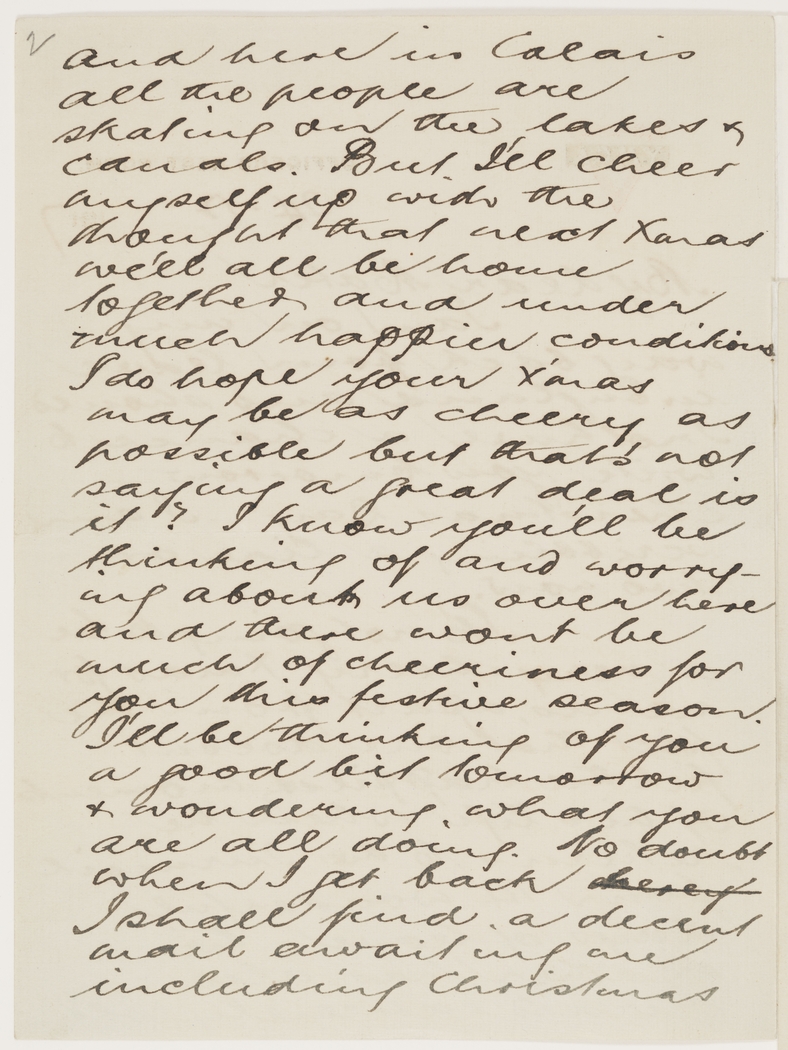 2
and here in Calais
all the people are
skating on the lakes &
canals. But I'll cheer
myself up with the
thought that next Xmas
we'll all be home
together and under
much happier conditions
I do hope your X'mas
may be as cheery as
possible but that's not
saying a great deal is
it? I know you'll be
thinking of and worry-
ing about us over here
and there wont be
much of cheeriness for
you this festive season.
I'll be thinking of you
a good bit tomorrow
& wondering what you
are all doing. No doubt
when I get back
I shall find a decent
mail awaiting me
including Christmas